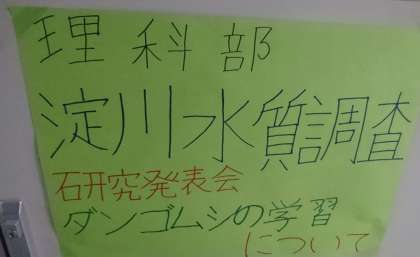 理科部
淀川水質調査
研究発表会
ダンゴムシの学習
について